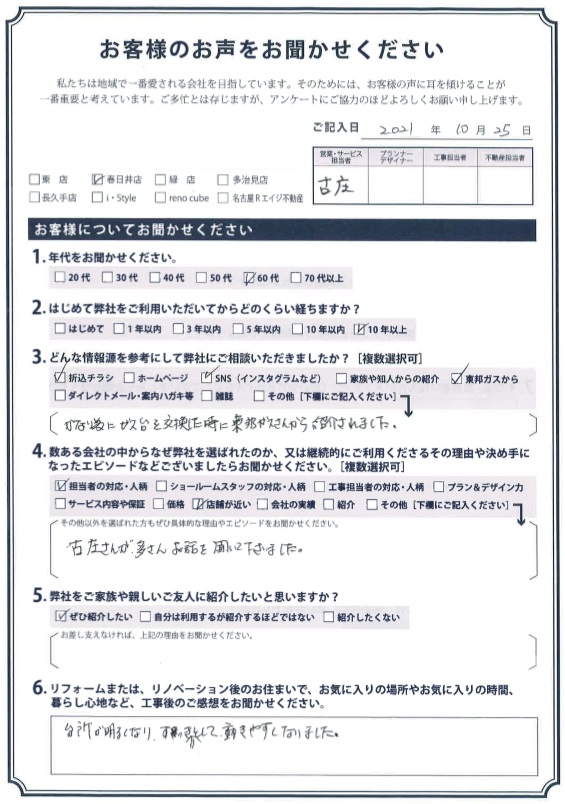 お客様のお声をお聞かせください
私たちは地域で一番愛される会社を目指しています。そのためには、お客様の声に耳を傾けることが
一番重要と考えています。ご多忙とは存じますが、アンケートにご協力のほどよろしくお願い申し上げます。
ご記入日 2021 年 10 月 25 日
営業・サービス担当者 プランナーデザイナー 工事担当者 不動産担当者
古庄
□東 店 ☑春日井店 □緑 店 □多治見店
□長久手店 □i・Style □reno cube □名古屋Rエイジ不動産
お客様についてお聞かせください
1. 年代をお聞かせください。
□20代 □30代 □40代 □50代 ☑60代 □70代以上
2. はじめて弊社をご利用いただいてからどのくらい経ちますか？
□はじめて □1年以内 □3年以内 □5年以内 □10年以内 ☑10年以上
3. どんな情報源を参考にして弊社にご相談いただきましたか？［複数選択可］
☑折込チラシ □ホームページ ☑SNS（インスタグラムなど） □家族や知人からの紹介 ☑東邦ガスから
□ダイレクトメール・案内ハガキ等 □雑誌 □その他［下欄にご記入ください］
かな前にガス台を交換した時に東邦ガスさんから紹介されました。
4. 数ある会社の中からなぜ弊社を選ばれたのか、又は継続的にご利用くださるその理由や決め手に
なったエピソードなどございましたらお聞かせください。［複数選択可］
☑担当者の対応・人柄 □ショールームスタッフの対応・人柄 □工事担当者の対応・人柄 □プラン＆デザイン力
□サービス内容や保証 □価格 ☑店舗が近い □会社の実績 □紹介 □その他［下欄にご記入ください］
その他以外を選ばれた方もぜひ具体的な理由やエピソードをお聞かせください。
古庄さんが、多さんお話を聞いて下さいました。
5. 弊社をご家族や親しいご友人に紹介したいと思いますか？
☑ぜひ紹介したい □自分は利用するが紹介するほどではない □紹介したくない
お差し支えなければ、上記の理由をお聞かせください。
6. リフォームまたは、リノベーション後のお住まいで、お気に入りの場所やお気に入りの時間、
暮らし心地など、工事後のご感想をお聞かせください。
台所が明るくなり、して、動きやすくなりました。